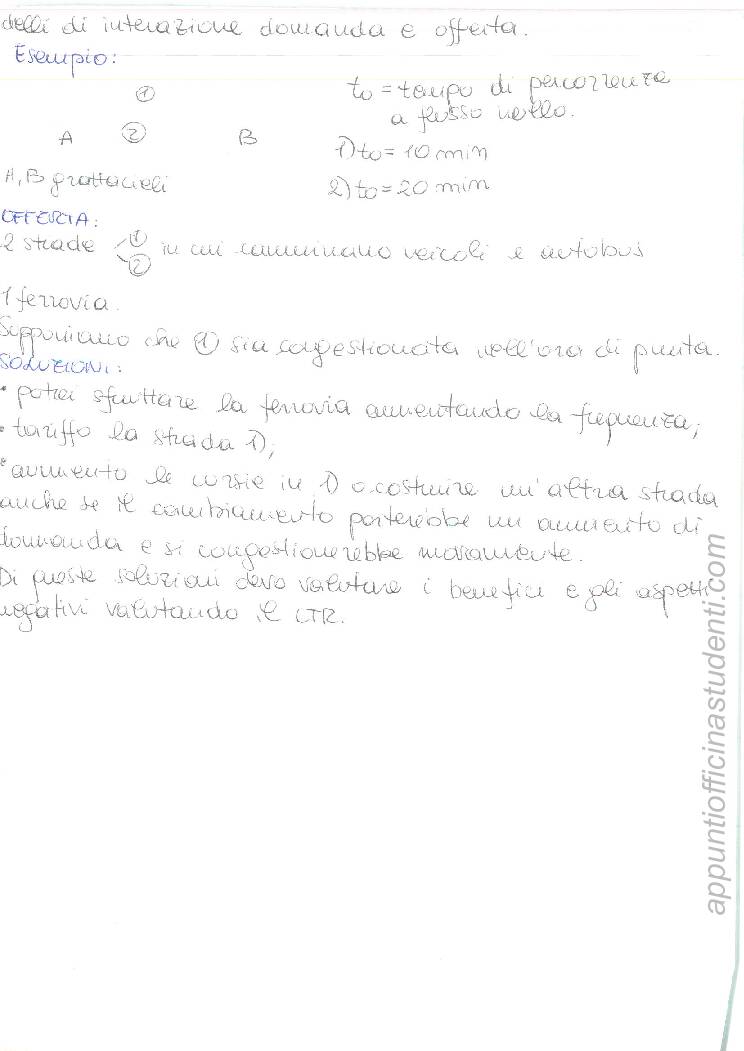 delli di interazione domanda e offerta.
Esempio:
t0 = tempo di percorrenza
a flusso nullo.
①
A ② B
1) t0 = 10 min
A, B grattacieli
2) t0 = 20 min
OFFERTA:
2 strade ① ② in cui camminano veicoli e autobus
1 ferrovia.
Supponiamo che ① sia congestionata nell'ora di punta.
SOLUZIONI:
• potrei sfruttare la ferrovia aumentando la frequenza;
• tariffo la strada 1);
• aumento le corsie in 1) o costruire un'altra strada
anche se il cambiamento porterebbe un aumento di
domanda e si congestionerebbe nuovamente.
Di queste soluzioni devo valutare i benefici e gli aspetti
negativi valutando il LTR.
appuntiofficinastudenti.com